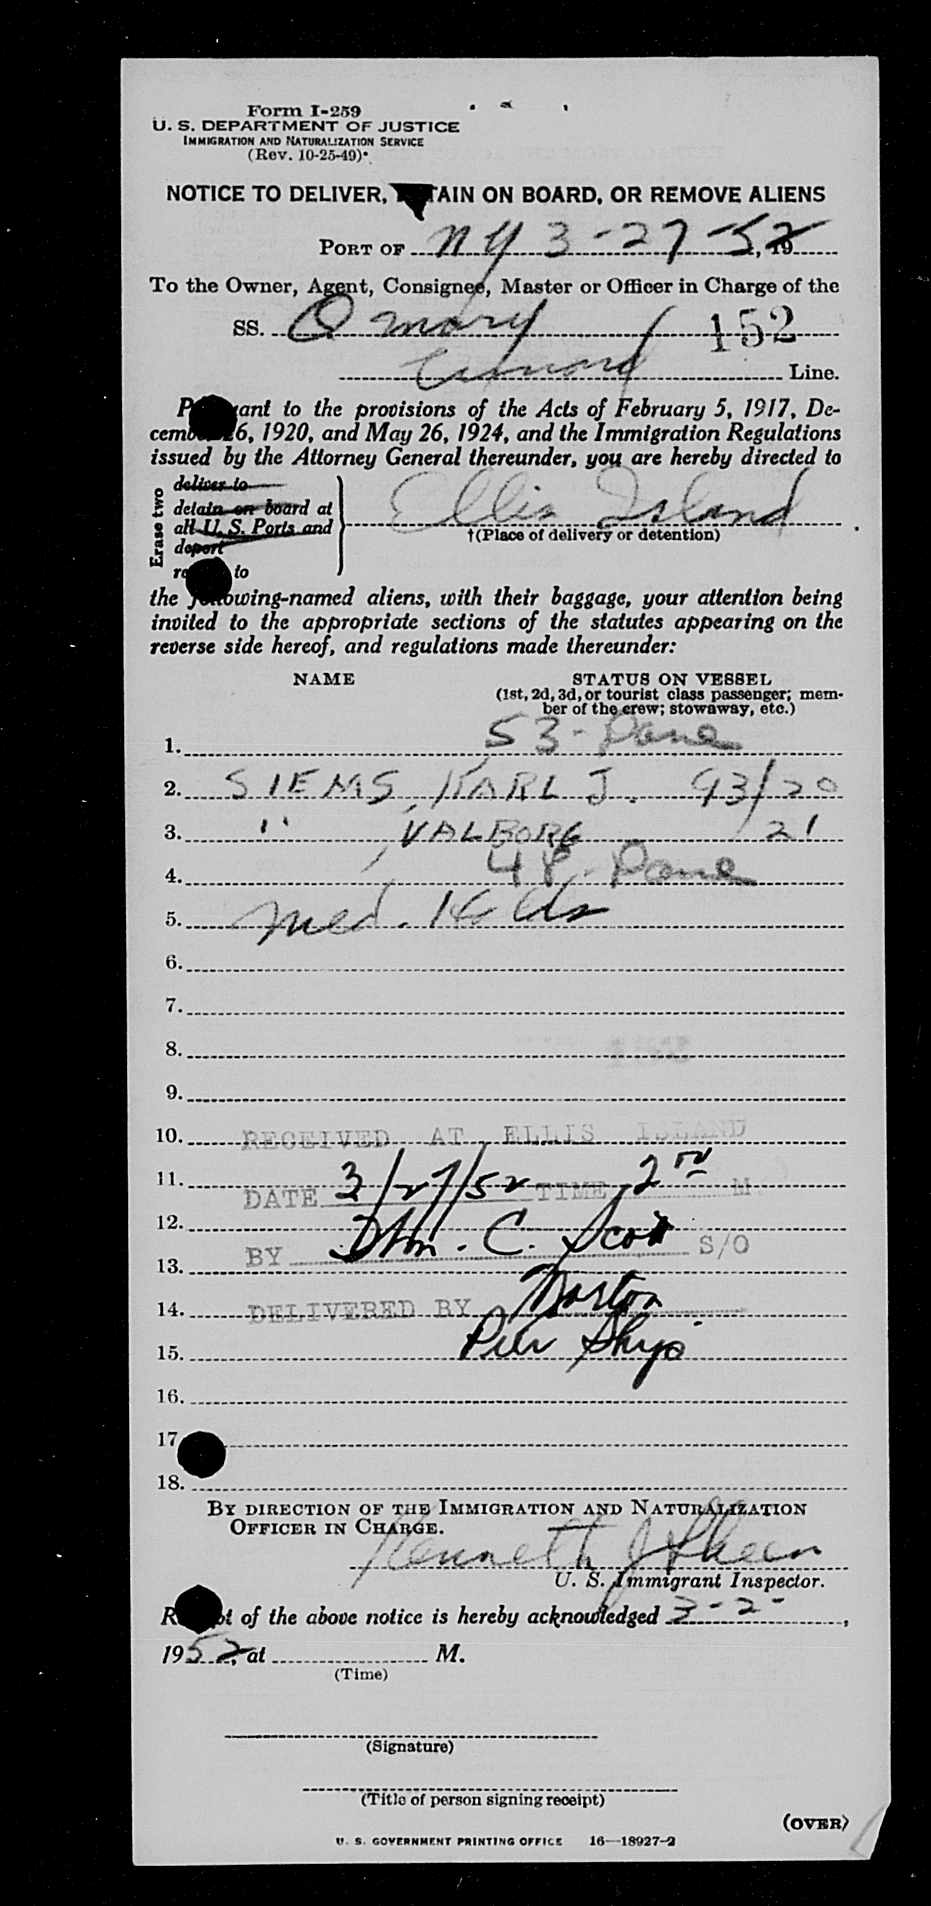 Form I-259
U. S. DEPARTMENT OF JUSTICE
IMMIGRATION AND NATURALIZATION SERVICE
(Rev. 10-25-49)
NOTICE TO DELIVER, TAIN ON BOARD, OR REMOVE ALIENS
PORT OF NY 3-27-52, 19
To the Owner, Agent, Consignee, Master or Officer in Charge of the
SS. Q mary 152
Cunard Line.
P ant to the provisions of the Acts of February 5, 1917, De-
cem 26, 1920, and May 26, 1924, and the Immigration Regulations
issued by the Attorney General thereunder, you are hereby directed to
Erase two
deliver to
detain on board at
all U. S. Ports and
deport
re to
Ellis Island
†(Place of delivery or detention)
the following-named aliens, with their baggage, your attention being
invited to the appropriate sections of the statutes appearing on the
reverse side hereof, and regulations made thereunder:
NAME STATUS ON VESSEL
(1st, 2d, 3d, or tourist class passenger; mem-
ber of the crew; stowaway, etc.)
1. 53-
2. SIEMS, KARL J. 93/20
3. " , VALBORG /21
4. 48-
5. Med. Holds
6.
7.
8.
9.
10. RECEIVED AT ELLIS ISLAND
11. DATE 3/27/52 TIME 2 M.
12.
BY C. Scott S/O
13.
14. DELIVERED BY Morton
15. Pier
16.
17
18.
BY DIRECTION OF THE IMMIGRATION AND NATURALIZATION
OFFICER IN CHARGE.
Kenneth J Skeen
U. S. Immigrant Inspector.
R t of the above notice is hereby acknowledged 3-2-,
1952, at M.
(Time)
(Signature)
(Title of person signing receipt)
(OVER)
U. S. GOVERNMENT PRINTING OFFICE 16—18927-2